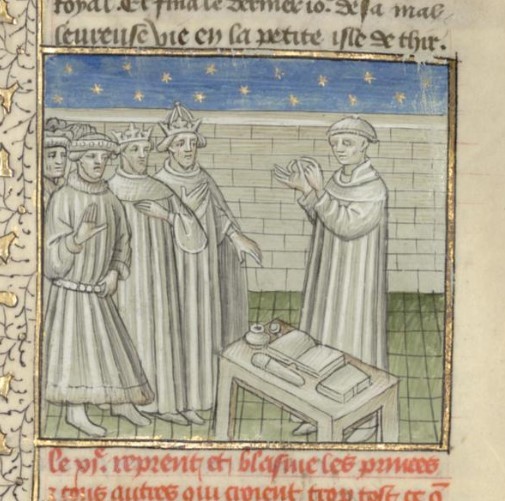 royal. Et fina le dernier io. de sa mal
leureuse vie en la petite isle de thir.
le pr̄. reprent et blasme les princes
⁊ tous autres qui croient trop tost ce